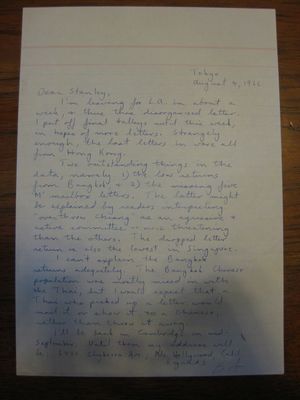 Tokyo
August 4, 196
Dear Stanley,
I'm leaving for L.A. in about a
week, & thus this disorganized letter.
I put off final talleys until this week,
in hopes of more letters. Strangely
enough, the last letters in were all
from Hong Kong.
Two outstanding things in the
data, namely 1) the low returns
from Bangkok & 2) the missing five
M' mailbox letters. The latter might
be explained by readers interpreting
"overthrow Chiang" as an aggressive &
active committee — more threatening
than the others. The dropped letter
return is also the least in Singapore.
I can't explain the Bangkok
returns adequately. The Bangkok Chinese
population was mostly mixed in with
the Thai, but I would expect that a
Thai who picked up a letter would
mail it or show it to a Chinese,
rather than throw it away.
I'll be back in Cambridge in mid-
September. Until then my address will
be: Ave, No. Hollywood, Calif.
Regards,